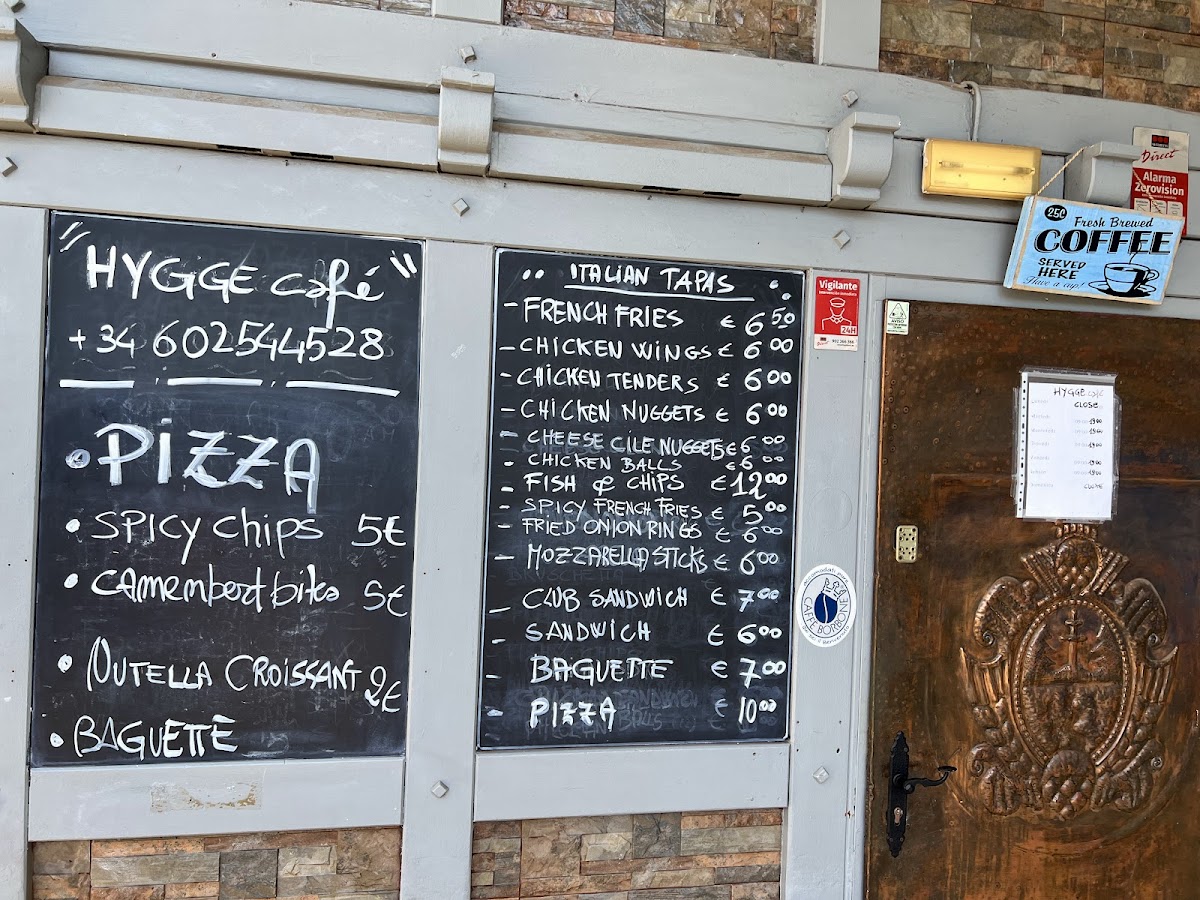 HYGGE café
+34 602544528
• PIZZA
• SPICY chips 5€
• camembert bites 5€
• NUTELLA CROISSANT 2€
• BAGUETTE
ITALIAN TAPAS
- FRENCH FRIES € 6 50
- CHICKEN WINGS € 6 00
- CHICKEN TENDERS € 6 00
- CHICKEN NUGGETS € 6 00
- CHEESE CILE NUGGETS € 6 00
- CHICKEN BALLS € 6 00
- FISH & CHIPS € 12 00
- SPICY FRENCH FRIES € 5 00
- FRIED ONION RINGS € 6 00
- MOZZARELLA STICKS € 6 00
- CLUB SANDWICH € 7 00
- SANDWICH € 6 00
- BAGUETTE € 7 00
- PIZZA € 10 00
Vigilante
24H
CAFFÈ BORBONE
Direct
Alarma
Zerovision
25¢
Fresh Brewed
COFFEE
SERVED
HERE
Have a cup!
HYGGE café
CLOSE